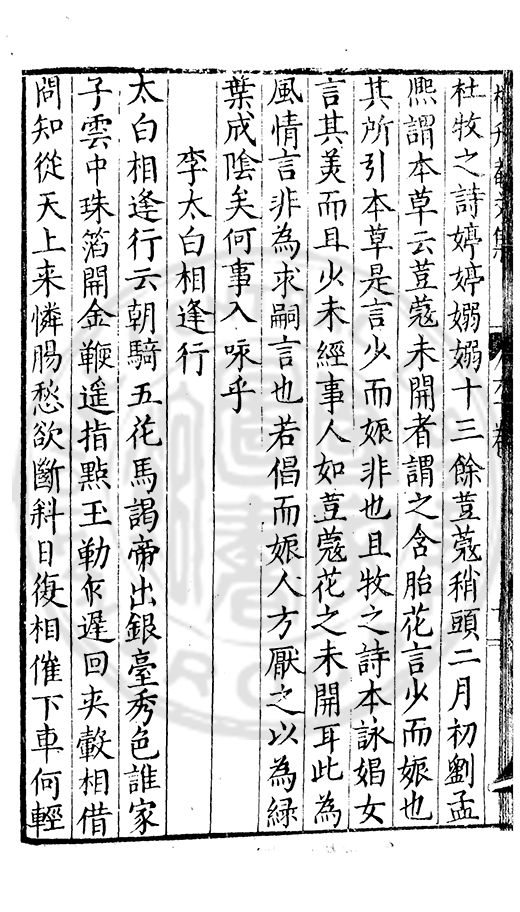 杜牧之詩娉娉嫋嫋十三餘荳蔻稍頭二月初劉孟
熈謂本草云荳蔻未開者謂之含胎花言少而娠也
其所引本草是言少而娠非也且牧之詩本詠娼女
言其美而且少未經事人如荳蔻花之未開耳此為
風情言非為求嗣言也若倡而娠人方厭之以為緑
葉成陰矣何事入咏乎
李太白相逢行
太白相逢行云朝騎五花馬謁帝出銀臺秀色誰家
子雲中珠箔開金鞭遥指點玉勒𠇍遲回夾轂相借
問知從天上来憐腸愁欲斷斜日復相催下車何輕